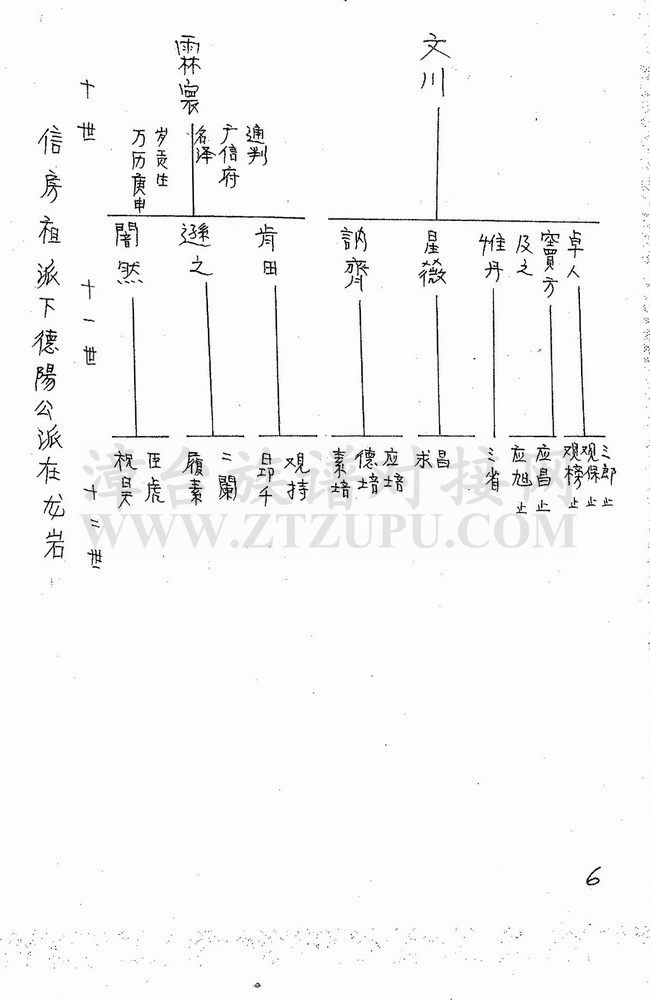 文川
霖寰
通判
广信府
名泽
岁贡生
万历庚申
卓人
宾方
及之
惟丹
星薇
訥齋
肯田
遜之
闇然
三郎止
观保止
观榜止
应昌止
应旭止
三省
昌
求
应培
德培
素培
观持
昂千
二闌
履素
臣虎
祝昊
十世
十一世
十二世
信房祖派下德陽公派在龙岩
漳台族谱对接网
WWW.ZTZUPU.COM
6